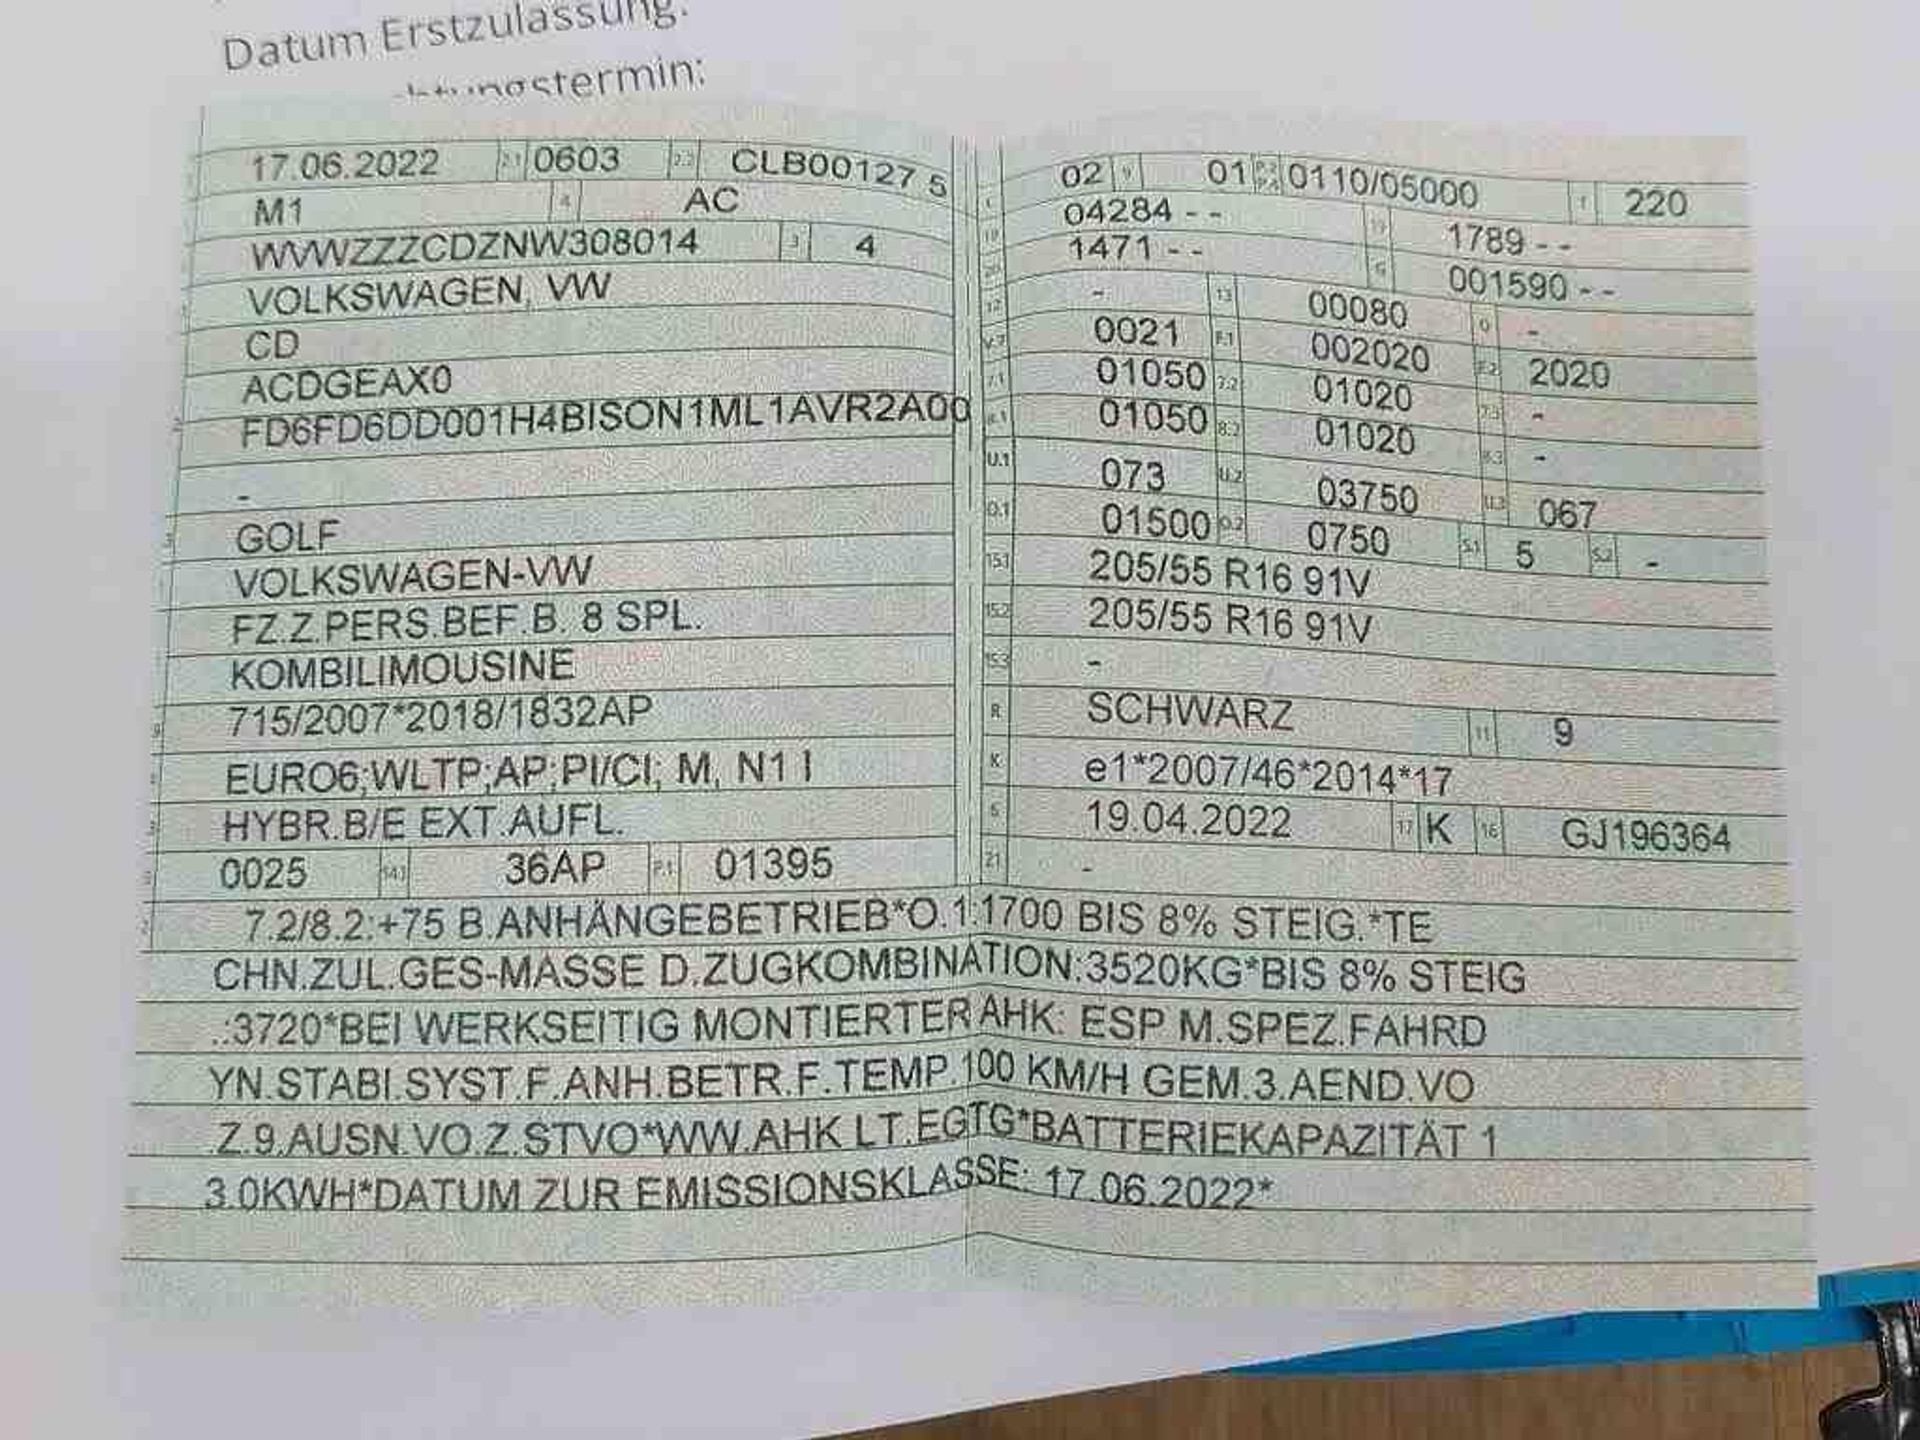 Datum Erstzulassung:
17.06.2022 2.1 0603 2.2 CLB00127 5
M1 4 AC
WVWZZZCDZNW308014 3 4
VOLKSWAGEN, VW
CD
ACDGEAX0
FD6FD6DD001H4BISON1ML1AVR2A00
-
GOLF
VOLKSWAGEN-VW
FZ.Z.PERS.BEF.B. 8 SPL.
KOMBILIMOUSINE
715/2007*2018/1832AP
EURO6;WLTP;AP;PI/CI; M, N1 I
HYBR.B/E EXT.AUFL.
0025 14.1 36AP P.1 01395
02 9 01 0110/05000 T 220
18 04284 - - 19 1789 - -
20 1471 - - G 001590 - -
12 - 13 00080 Q -
V.7 0021 F.1 002020 F.2 2020
7.1 01050 7.2 01020 7.3 -
8.1 01050 8.2 01020 8.3 -
U.1 073 U.2 03750 U.3 067
O.1 01500 O.2 0750 S.1 5 S.2 -
15.1 205/55 R16 91V
15.2 205/55 R16 91V
15.3 -
R SCHWARZ 11 9
K e1*2007/46*2014*17
6 19.04.2022 17 K 16 GJ196364
21 -
7.2/8.2:+75 B.ANHÄNGEBETRIEB*O.1:1700 BIS 8% STEIG.*TE
CHN.ZUL.GES-MASSE D.ZUGKOMBINATION:3520KG*BIS 8% STEIG
.:3720*BEI WERKSEITIG MONTIERTER AHK: ESP M.SPEZ.FAHRD
YN.STABI.SYST.F.ANH.BETR.F.TEMP.100 KM/H GEM.3.AEND.VO
.Z.9.AUSN.VO.Z.STVO*WW.AHK LT.EGTG*BATTERIEKAPAZITÄT 1
3.0KWH*DATUM ZUR EMISSIONSKLASSE: 17.06.2022*